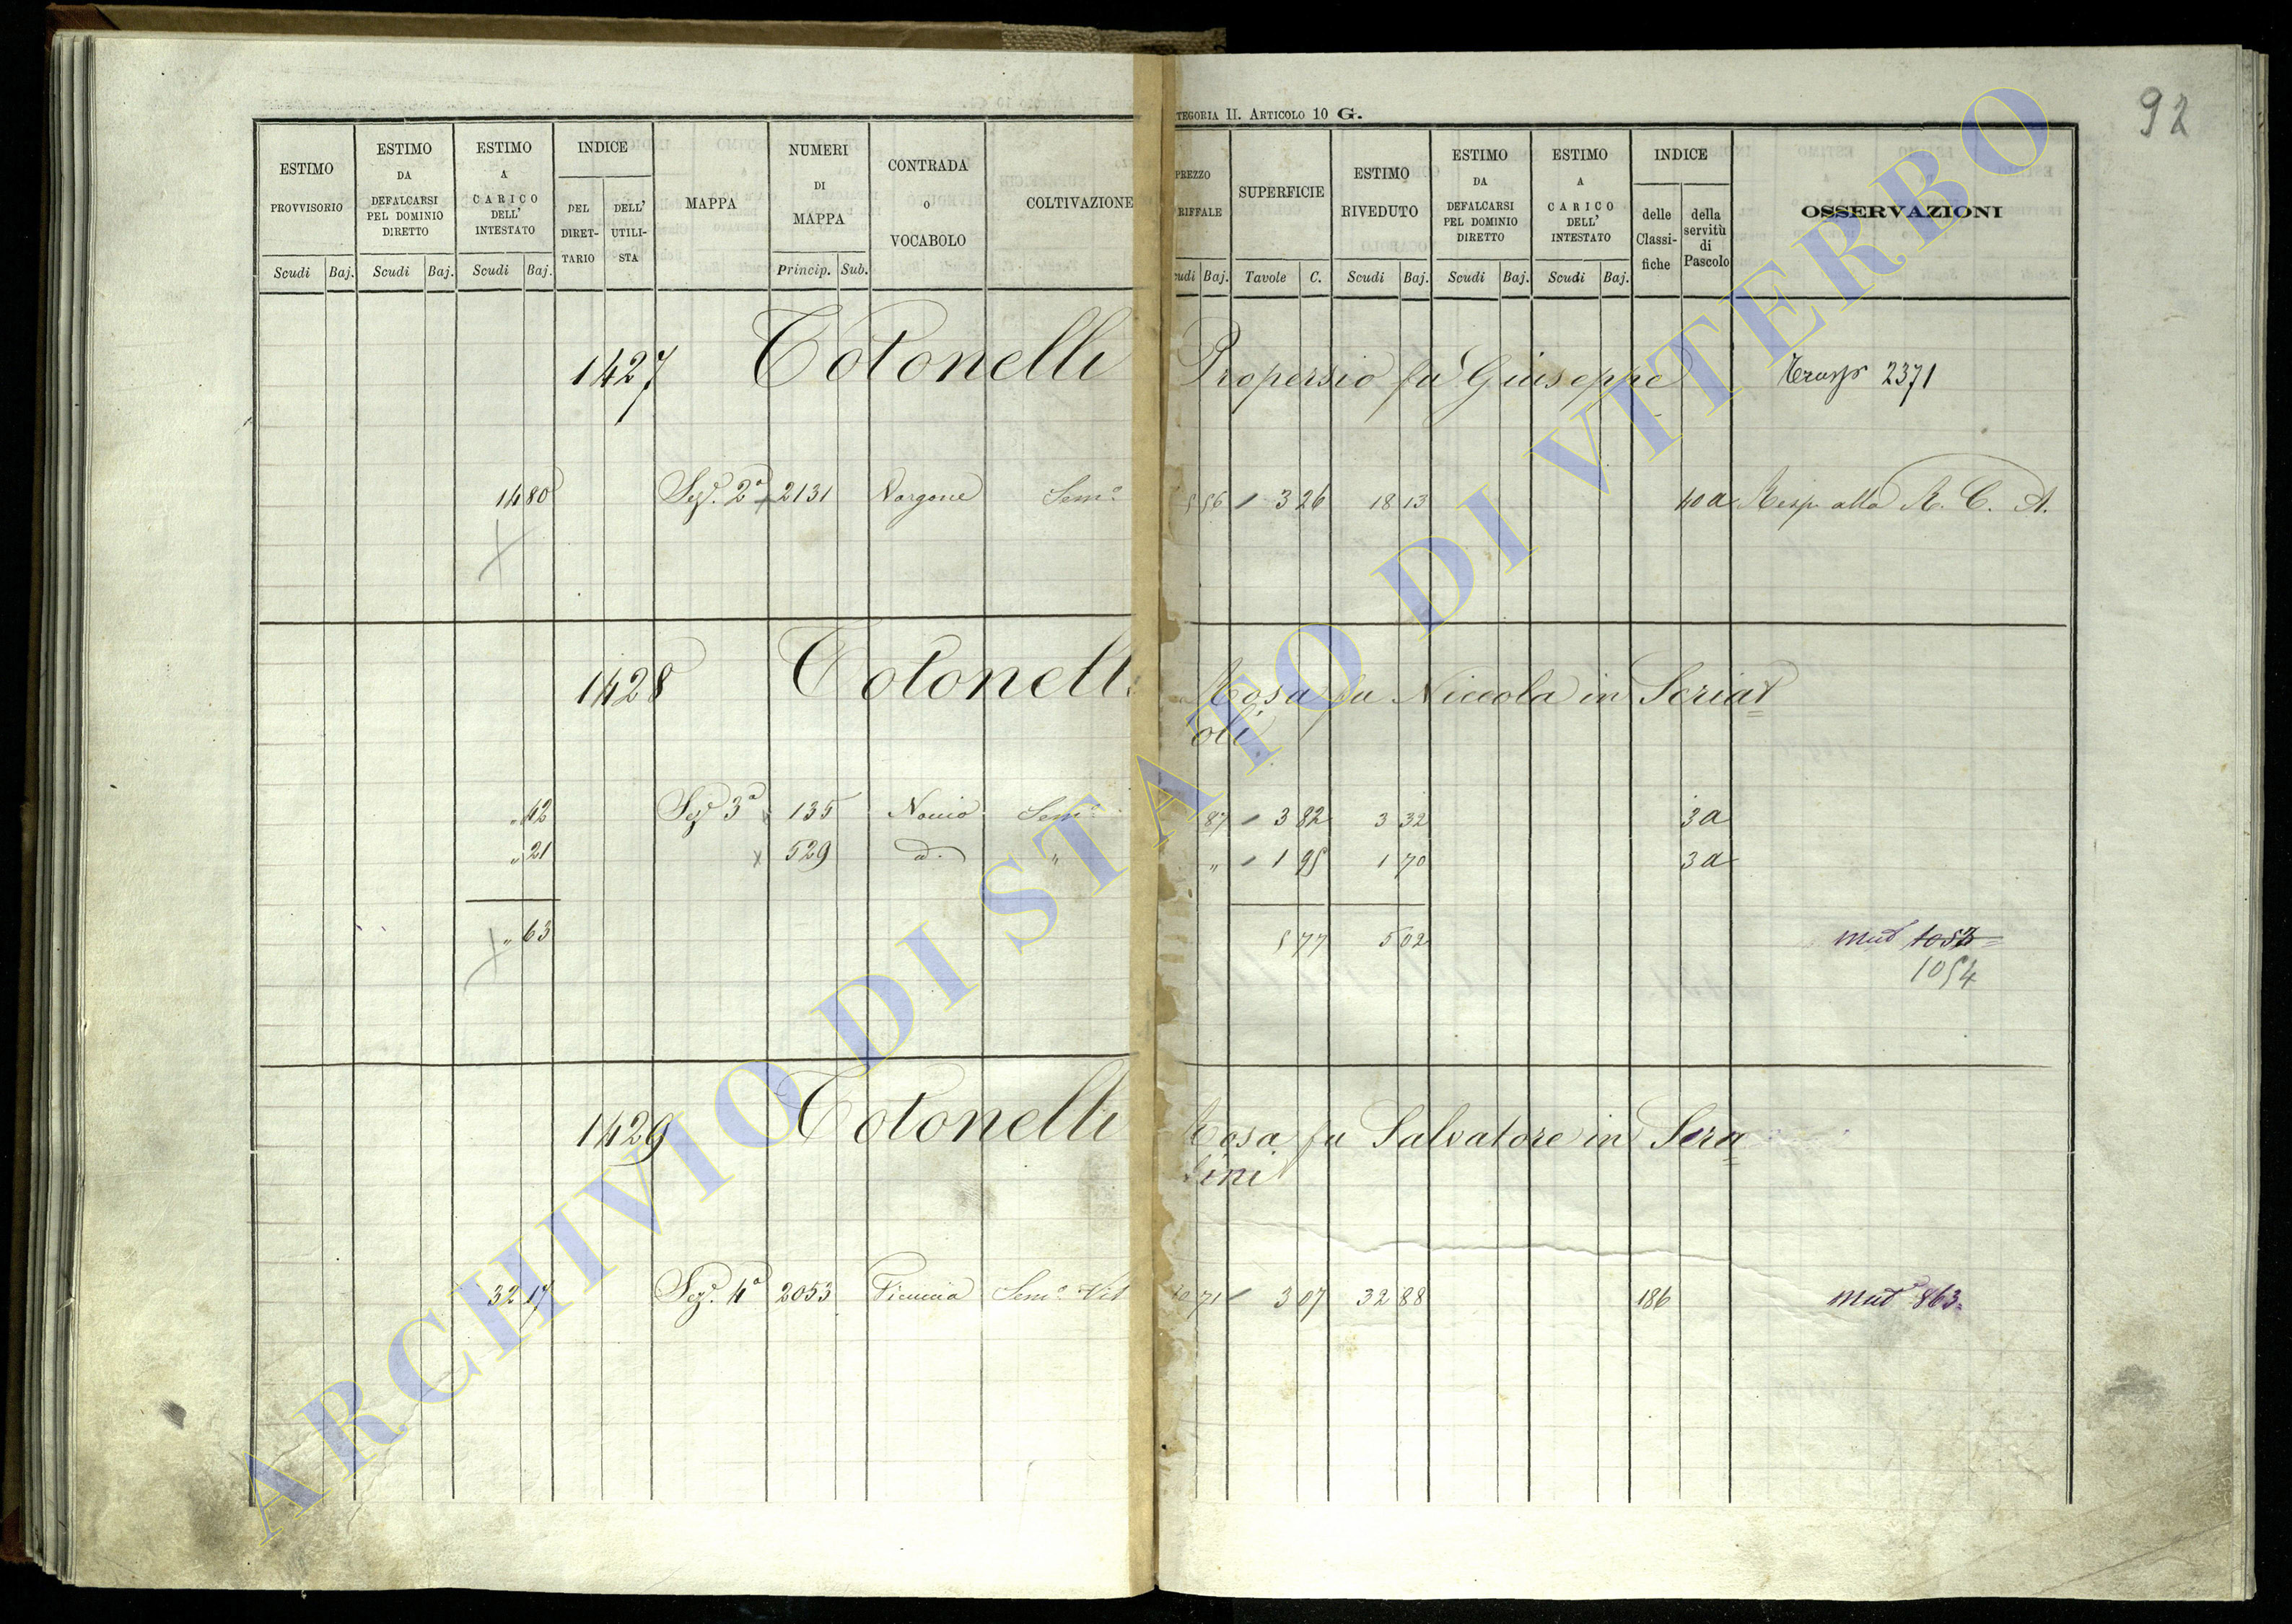 92
TEGORIA II. ARTICOLO 10 G.
ESTIMO PROVVISORIO
ESTIMO DA DEFALCARSI PEL DOMINIO DIRETTO
ESTIMO A CARICO DELL' INTESTATO
INDICE
DEL DIRET- TARIO
DELL' UTILI- STA
MAPPA
NUMERI DI MAPPA
CONTRADA O VOCABOLO
COLTIVAZIONE
PREZZO RIFFALE
SUPERFICIE
ESTIMO RIVEDUTO
ESTIMO DA DEFALCARSI PEL DOMINIO DIRETTO
ESTIMO A CARICO DELL' INTESTATO
INDICE
delle Classi- fiche
della servitù di Pascolo
OSSERVAZIONI
Scudi Baj. Scudi Baj. Scudi Baj. Princip. Sub. cudi Baj. Tavole C. Scudi Baj. Scudi Baj. Scudi Baj.
1427 Totonelli Propersio fu Giuseppe Trasp 2371
14 80 Sez. 2a 2131 Sem.o 5 56 3 26 18 13 40 a Risp. alla R. C. A.
1428 Totonelli Rosa fu Niccola in Scriat=
oli
" 42 Sez. 3a 135 Sem.o 87 3 82 3 32 3 a
" 21 529 d. " " 1 95 1 70 3 a
" 63 5 77 5 02 Mut 1053=
1054
1429 Totonelli Rosa fu Salvatore in Sera=
fini
32 17 Sez. 4a 2053 Sem.o Vit 71 3 07 32 88 186 Mut 863=
ARCHIVIO DI STATO DI VITERBO